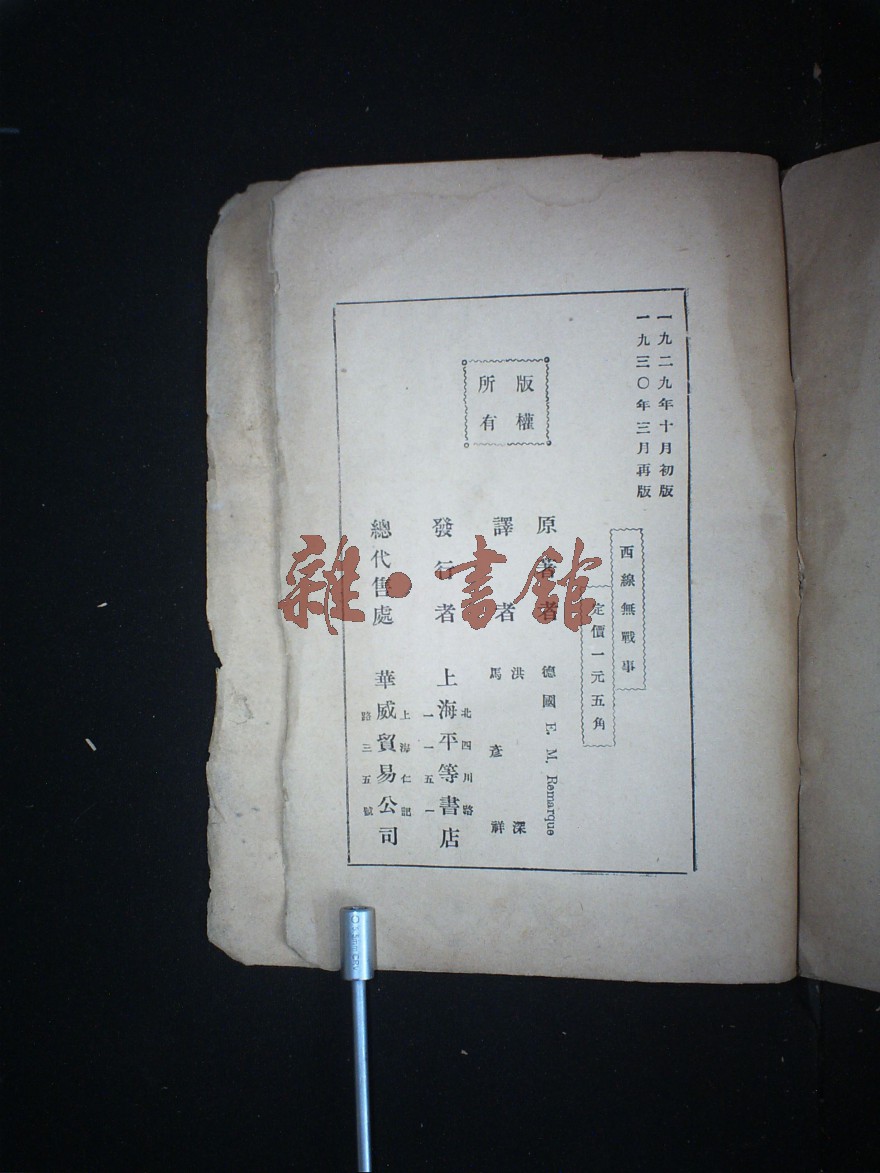 一九二九年十月初版
一九三〇年三月再版
西線無戰事
定價一元五角
版權
所有
原著者 德國 E. M. Remarque
譯者 洪深
馬彥祥
發行者 上海平等書店
北四川路
一一五一
總代售處 華威貿易公司
上海仁記
路三五號
雜·書館